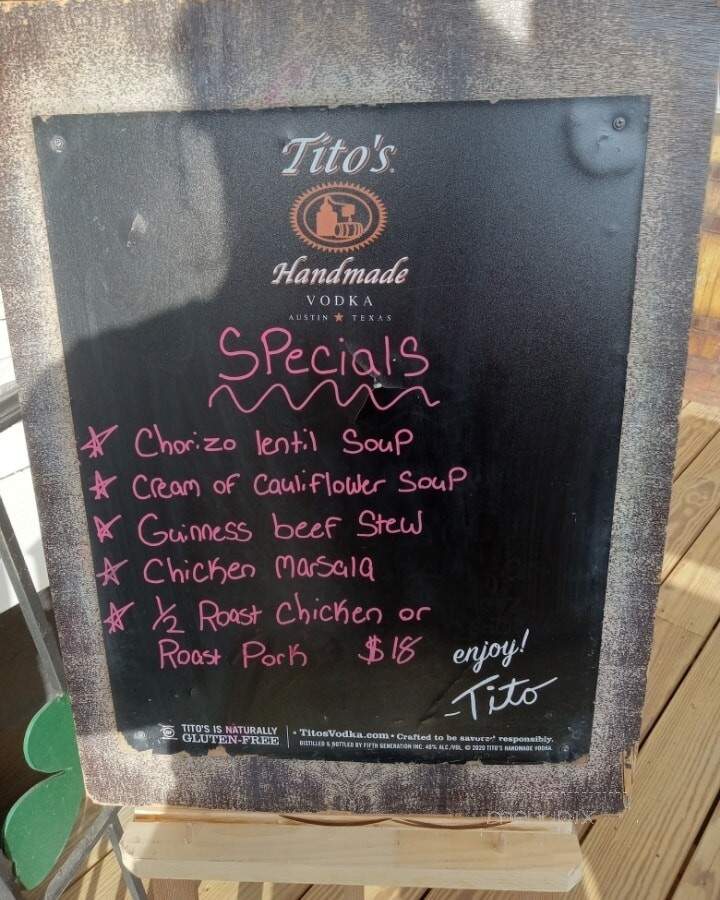 Tito's
Handmade
VODKA
AUSTIN ★ TEXAS
SPecials
☆ Chorizo lentil SouP
☆ Cream of Cauliflower SouP
☆ Guinness beef Stew
☆ Chicken Marsala
☆ 1/2 Roast Chicken or
Roast Pork $18
enjoy!
-Tito
TITO'S IS NATURALLY
GLUTEN-FREE
• TitosVodka.com • Crafted to be savored responsibly.
DISTILLED & BOTTLED BY FIFTH GENERATION INC. 40% ALC./VOL. © 2020 TITO'S HANDMADE VODKA.